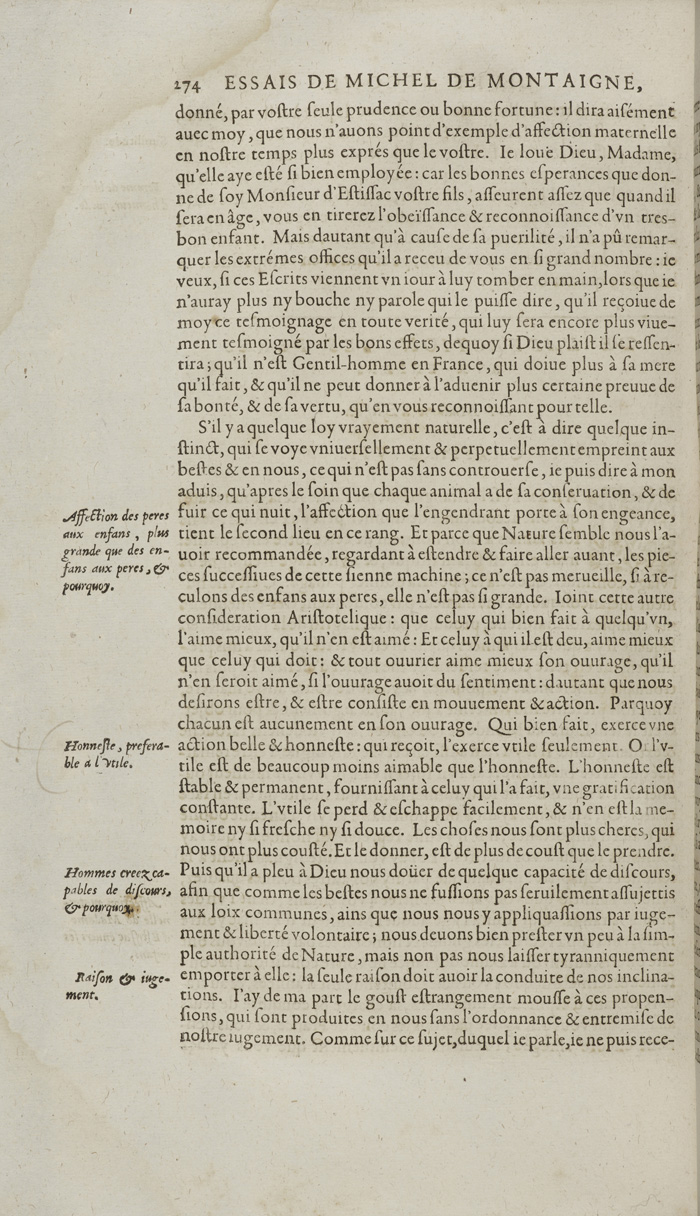 274 ESSAIS DE MICHEL DE MONTAIGNE,
donné, par voſtre ſeule prudence ou bonne fortune : il dira aiſément
auec moy, que nous n'auons point d'exemple d'affection maternelle
en noſtre temps plus exprés que le voſtre. Ie louë Dieu, Madame,
qu'elle aye eſté ſi bien employée : car les bonnes eſperances que don-
ne de ſoy Monſieur d'Eſtiſſac voſtre fils, aſſeurent aſſez que quand il
ſera en âge, vous en tirerez l'obeïſſance & reconnoiſſance d'vn tres-
bon enfant. Mais dautant qu'à cauſe de ſa puerilité, il n'a pû remar-
quer les extrémes offices qu'il a receu de vous en ſi grand nombre : ie
veux, ſi ces Eſcrits viennent vn iour à luy tomber en main, lors que ie
n'auray plus ny bouche ny parole qui le puiſſe dire, qu'il reçoiue de
moy ce teſmoignage en toute verité, qui luy ſera encore plus viue-
ment teſmoigné par les bons effets, dequoy ſi Dieu plaiſt il ſe reſſen-
tira ; qu'il n'eſt Gentil-homme en France, qui doiue plus à ſa mere
qu'il fait, & qu'il ne peut donner à l'aduenir plus certaine preuue de
ſa bonté, & de ſa vertu, qu'en vous reconnoiſſant pour telle.
S'il y a quelque loy vrayement naturelle, c'eſt à dire quelque in-
ſtinct, qui ſe voye vniuerſellement & perpetuellement empreint aux
beſtes & en nous, ce qui n'eſt pas ſans controuerſe, ie puis dire à mon
aduis, qu'apres le ſoin que chaque animal a de ſa conſeruation, & de
Affection des peres
aux enfans, plus
grande que des en-
fans aux peres, &
pourquoy.
fuir ce qui nuit, l'affection que l'engendrant porte à ſon engeance,
tient le ſecond lieu en ce rang. Et parce que Nature ſemble nous l'a-
uoir recommandée, regardant à eſtendre & faire aller auant, les pie-
ces ſucceſſiues de cette ſienne machine ; ce n'eſt pas merueille, ſi à re-
culons des enfans aux peres, elle n'eſt pas ſi grande. Ioint cette autre
conſideration Ariſtotelique : que celuy qui bien fait à quelqu'vn,
l'aime mieux, qu'il n'en eſt aimé : Et celuy à qui il eſt deu, aime mieux
que celuy qui doit : & tout ouurier aime mieux ſon ouurage, qu'il
n'en ſeroit aimé, ſi l'ouurage auoit du ſentiment : dautant que nous
deſirons eſtre, & eſtre conſiſte en mouuement & action. Parquoy
chacun eſt aucunement en ſon ouurage. Qui bien fait, exerce vne
Honneſte, prefera-
ble à l'vtile.
action belle & honneſte : qui reçoit, l'exerce vtile ſeulement. Or l'v-
tile eſt de beaucoup moins aimable que l'honneſte. L'honneſte eſt
ſtable & permanent, fourniſſant à celuy qui l'a fait, vne gratification
conſtante. L'vtile ſe perd & eſchappe facilement, & n'en eſt la me-
moire ny ſi freſche ny ſi douce. Les choſes nous ſont plus cheres, qui
nous ont plus couſté. Et le donner, eſt de plus de couſt que le prendre.
Hommes creez ca-
pables de diſcours,
& pourquoy.
Puis qu'il a pleu à Dieu nous doüer de quelque capacité de diſcours,
afin que comme les beſtes nous ne fuſſions pas ſeruilement aſſujettis
aux loix communes, ains que nous nous y appliquaſſions par iuge-
ment & liberté volontaire ; nous deuons bien preſter vn peu à la ſim-
ple authorité de Nature, mais non pas nous laiſſer tyranniquement
Raiſon & iuge-
ment.
emporter à elle : la ſeule raiſon doit auoir la conduite de nos inclina-
tions. I'ay de ma part le gouſt eſtrangement mouſſe à ces propen-
ſions, qui ſont produites en nous ſans l'ordonnance & entremiſe de
noſtre iugement. Comme ſur ce ſujet, duquel ie parle, ie ne puis rece-